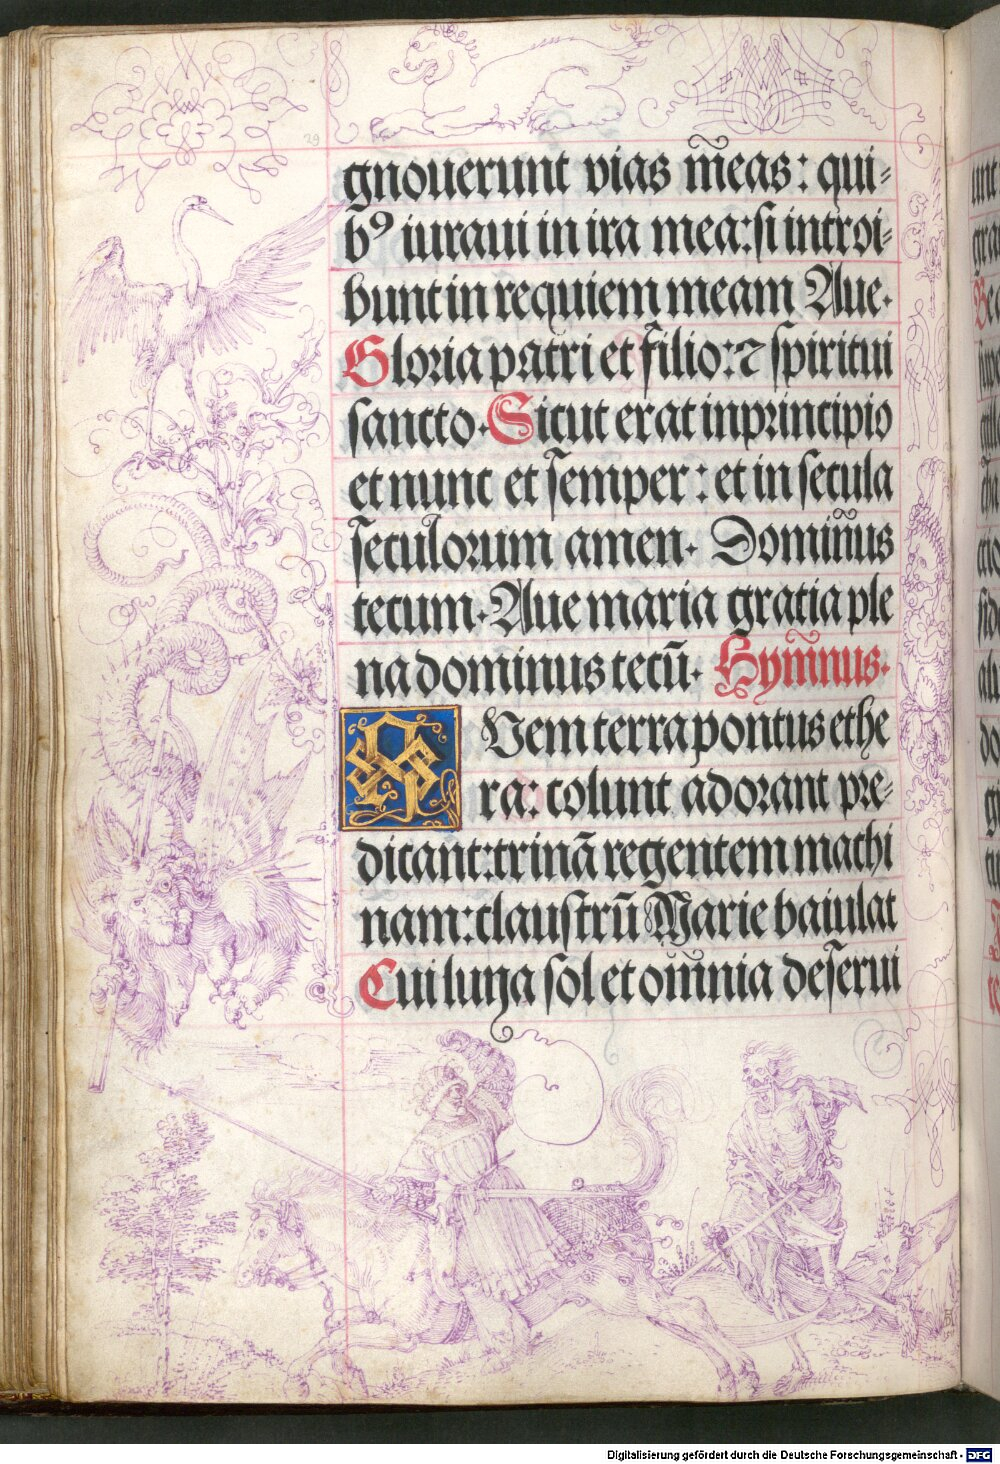 29
gnouerunt vias m̃eas: qui-
bꝰ iuraui in ira mea: si introi-
bunt in requiem meam Aue.
Gloria patri et filio: ⁊ spiritui
sancto. Sicut erat in principio
et nunc et semper: et in secula
seculorum amen. Domiñus
tecum. Aue maria gratia ple
na dominus tecũ. Hym̃nus.
QVem terra pontus ethe
ra: colunt adorant pre-
dicant: trinã regentem machi
nam: claustrũ Marie baiulat
Cui luna sol et om̃nia deserui
Digitalisierung gefördert durch die Deutsche Forschungsgemeinschaft - DFG